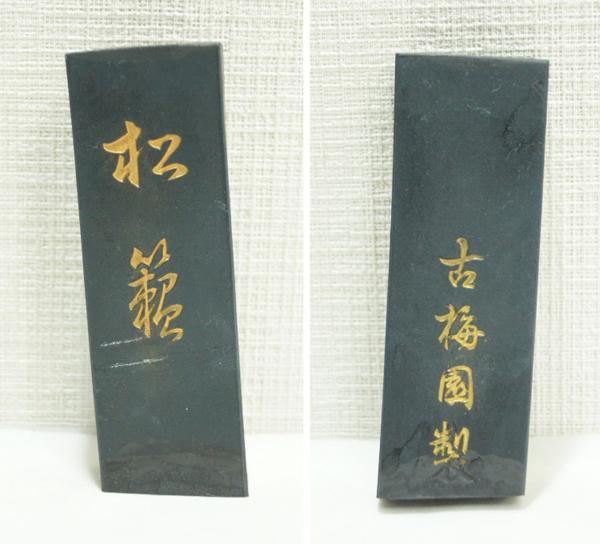 松籟
古梅園製